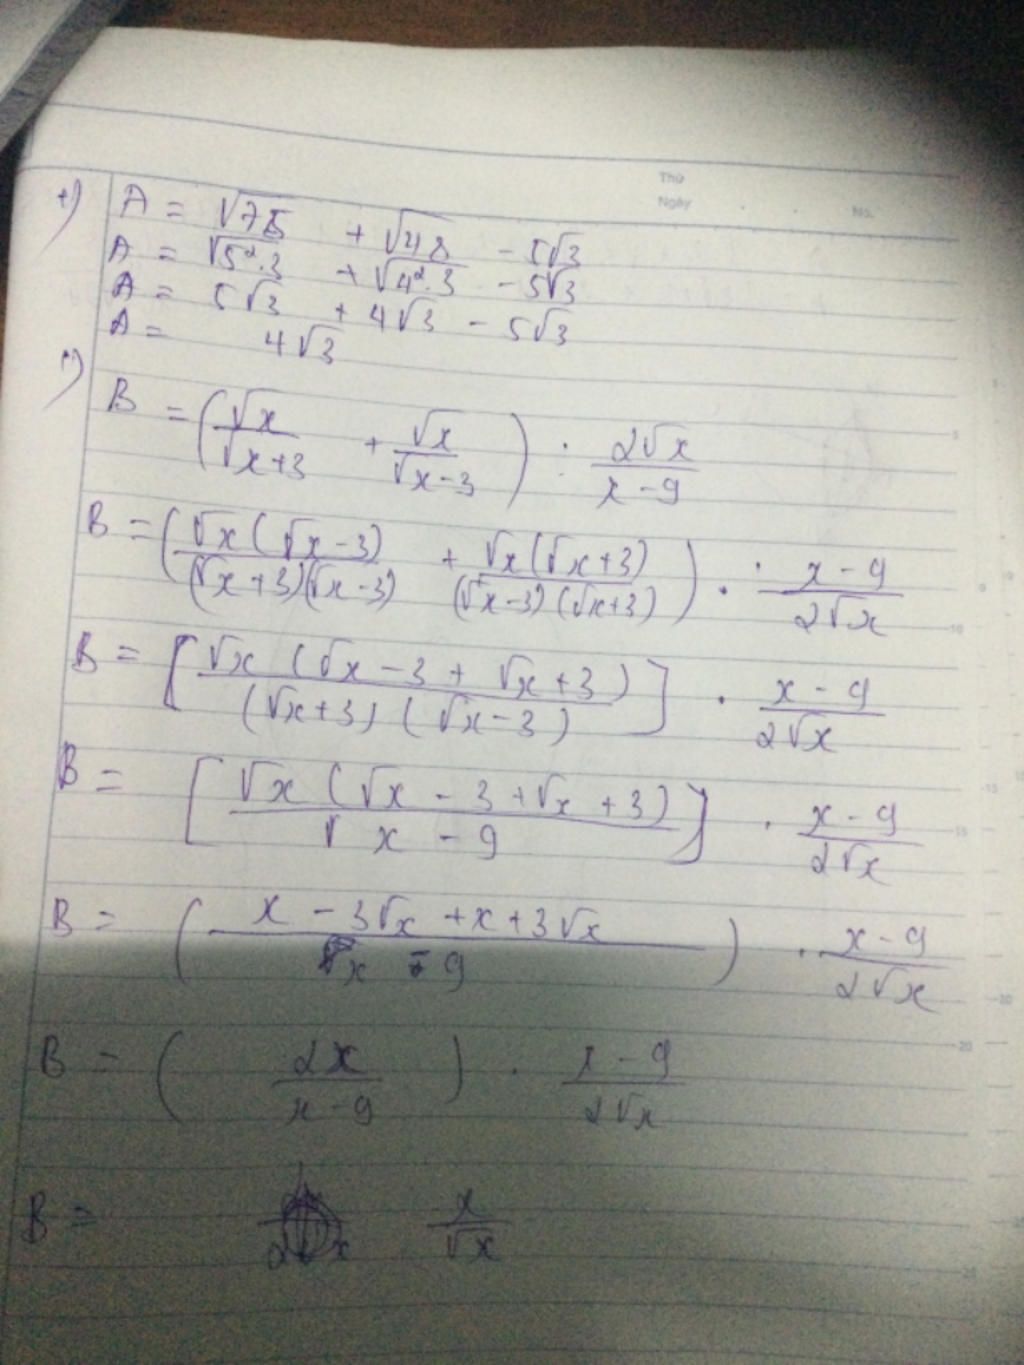 Thứ
Ngày
No.
+) A = √75 + √48 - 5√3
A = √5².3 + √4².3 - 5√3
A = 5√3 + 4√3 - 5√3
A = 4√3
+) B = (√x/(√x+3) + √x/(√x-3)) : 2√x/(x-9)
B = (√x(√x-3)/((√x+3)(√x-3)) + √x(√x+3)/((√x-3)(√x+3))) . (x-9)/(2√x)
B = [√x(√x-3+√x+3)/((√x+3)(√x-3))] . (x-9)/(2√x)
B = [√x(√x-3+√x+3)/(x-9)] . (x-9)/(2√x)
B = ((x-3√x+x+3√x)/(x-9)) . (x-9)/(2√x)
B = (2x/(x-9)) . (x-9)/(2√x)
B = x/√x